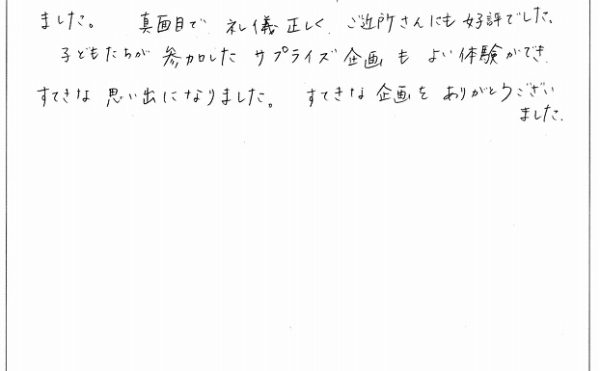 ました。 真面目で 礼儀正しく、ご近所さんにも好評でした。
子どもたちが 参加した サプライズ企画も よい体験ができ
すてきな 思い出になりました。 すてきな企画を ありがとうござい
ました。